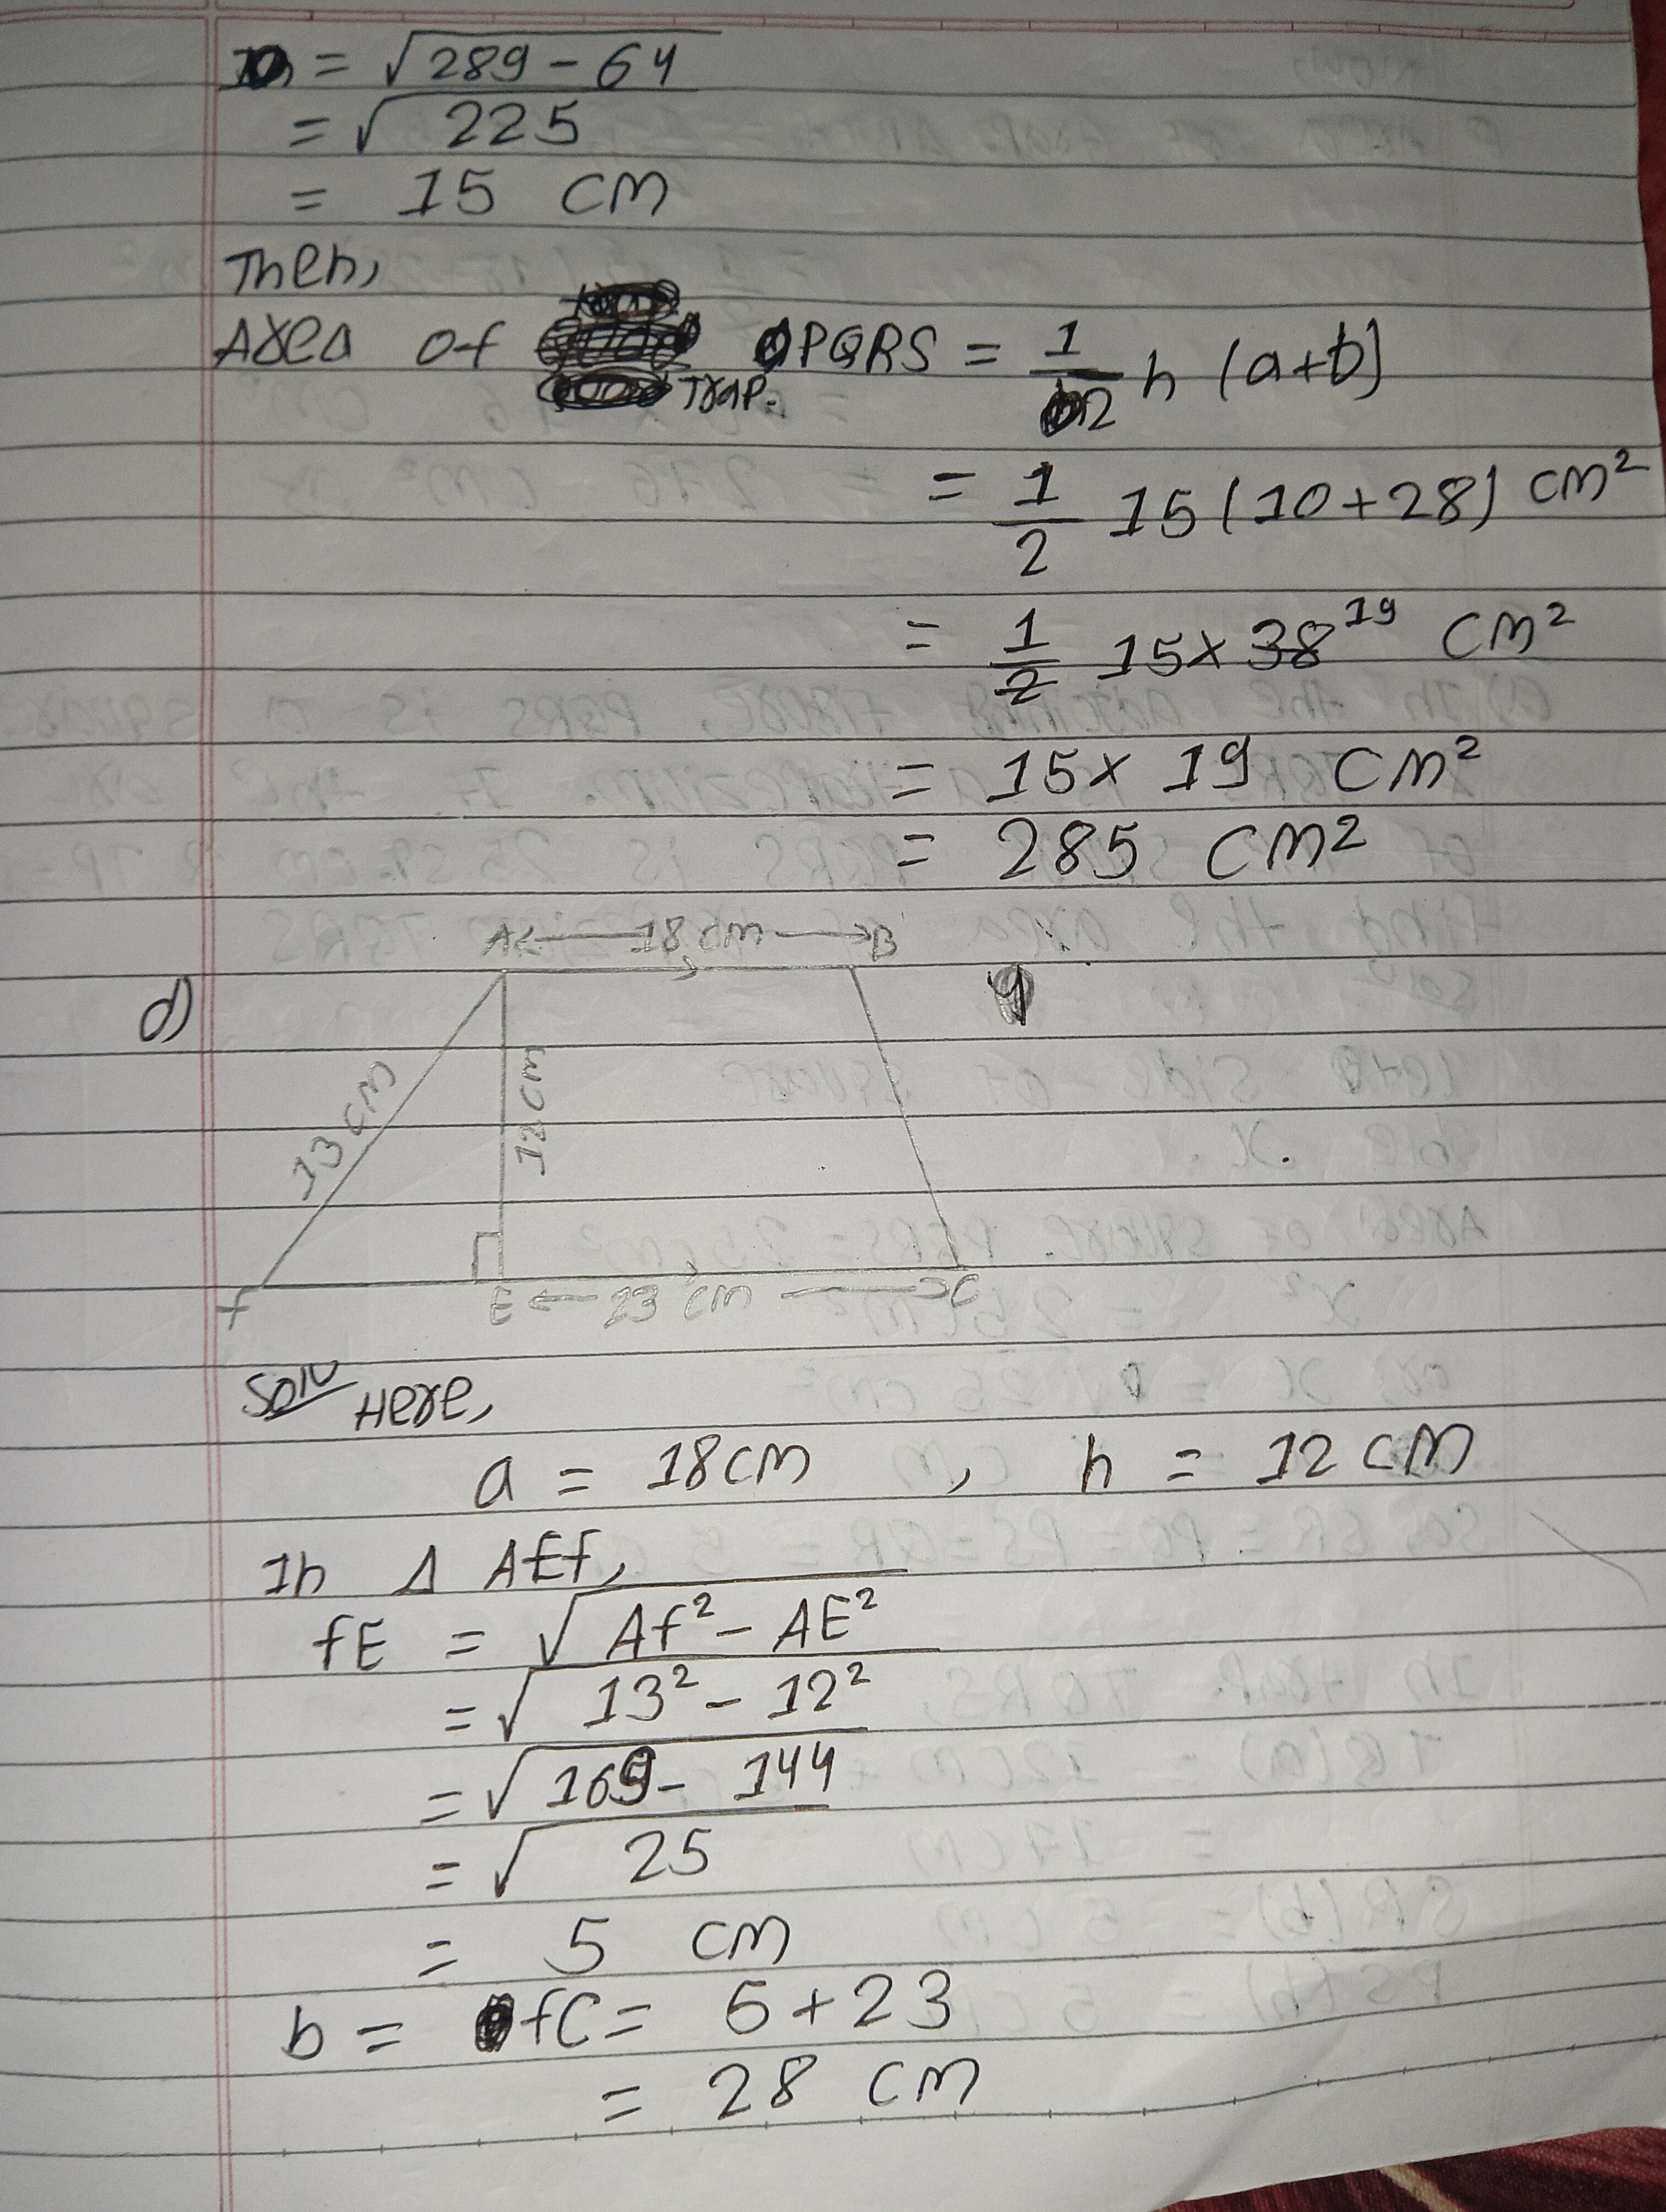 h = √289 - 64
= √225
= 15 cm
Then,
Area of Trap. PQRS = 1/2 h (a+b)
= 1/2 15 (10+28) cm²
= 1/2 15 × 38 19 cm²
= 15 × 19 cm²
= 285 cm²
d)
A ← 18 cm → B
13 cm
12 cm
f E ← 23 cm → C
Soln Here,
a = 18 cm , h = 12 cm
In Δ AEf,
fE = √Af² - AE²
= √13² - 12²
= √169 - 144
= √25
= 5 cm
b = fC = 5 + 23
= 28 cm